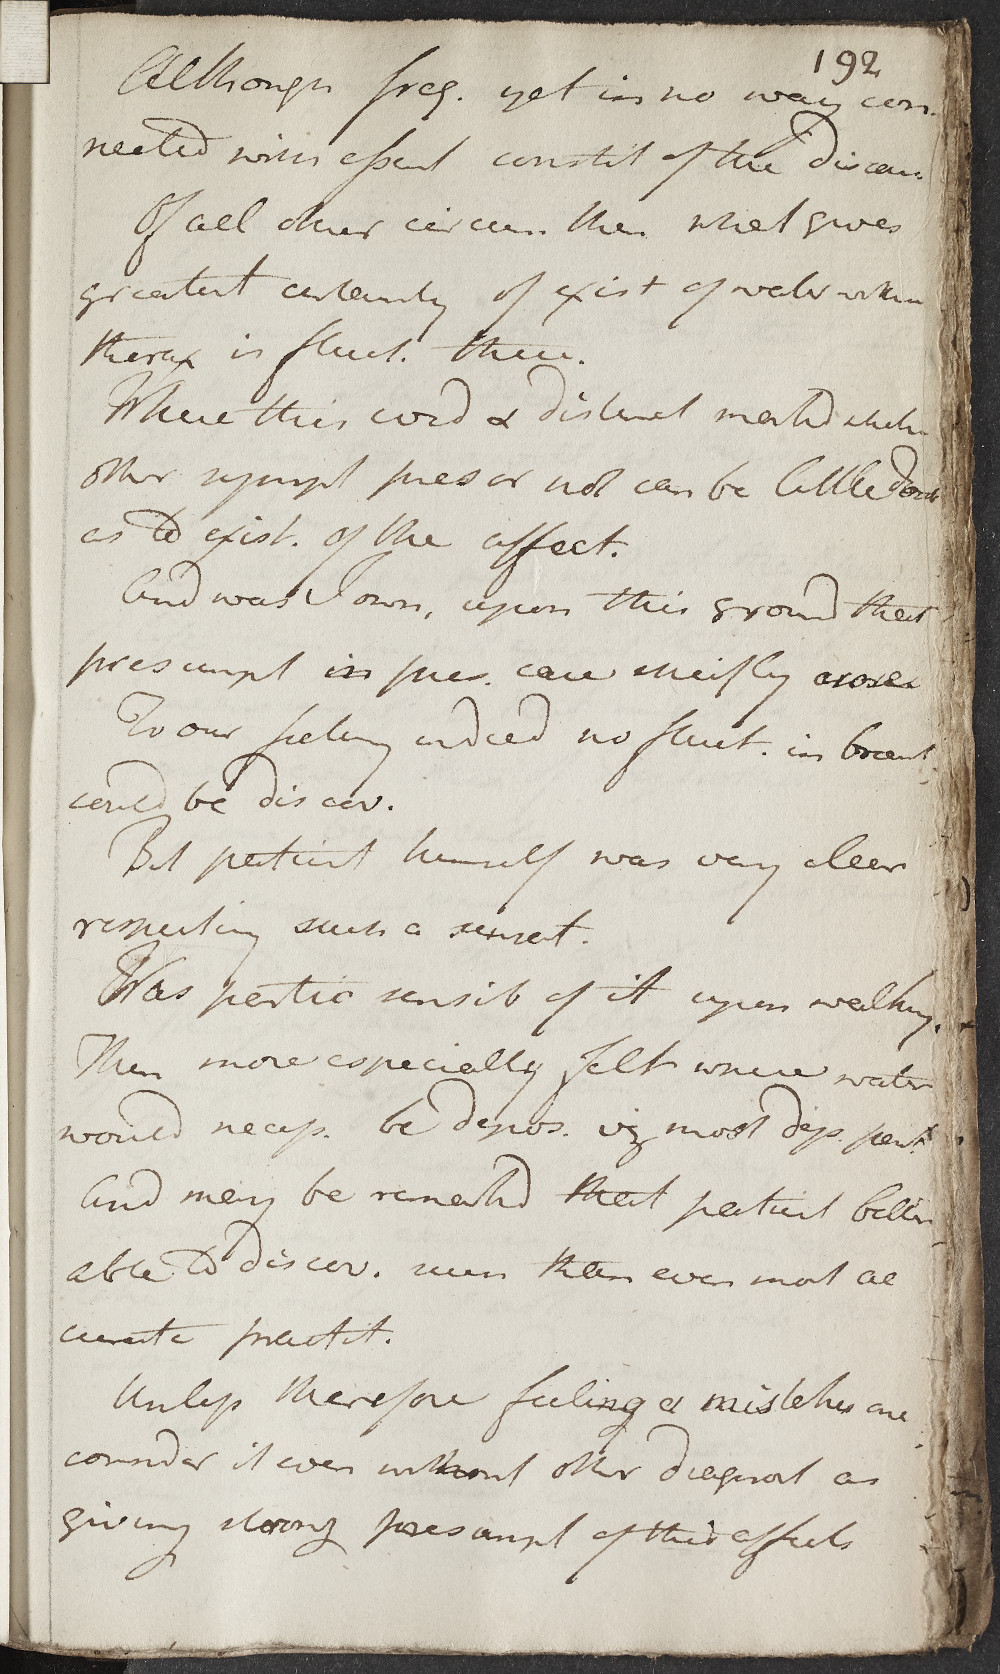 192
Although freq. yet in no way con
nected with essent constit of the diseas
Of all other circum. then what gives
greatest certainty of exist of water within
thorax is fluct. there.
Where this evid & distinct markd wheth
other sympt pres or not can be little doubt
as to exist. of the affect.
And was I own, upon this ground that
presumpt in pres. case chiefly arose
To our feeling indeed no fluct. in breast
could be discov.
But patient himself was very clear
respecting such a sensat.
Was partic sensib of it upon walking.
Then more especially felt where water
would necess. be depos. viz most dep. part
And may be remarkd that patient better
able to discov. such than even most ac
curate practit.
Unless therefore feeling a mistaken one
consider it even without other diagnost as
giving strong presumpt of this affect